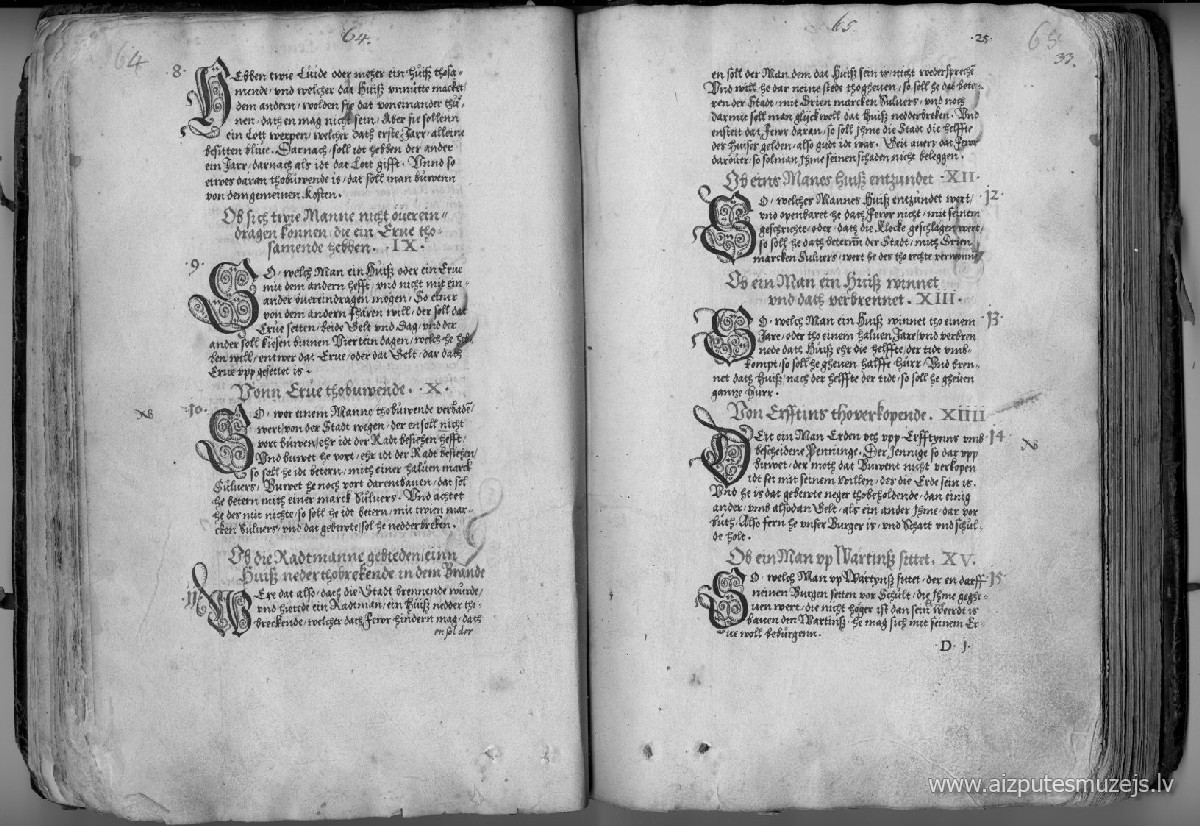 64.
64
8.
Hebben twie Lüide oder meher ein Hüiß thosa-
mende, vnd welcher dat Hüiß vnnütte macket
dem andern, wolden sie dat von einander thü-
nen, dath en mag nicht sein, Aber sie sollenn
ein Lott werpen, welcher dath erste Jarr, alleine
besitten blüe. Darnach, soll idt hebben der ander
ein Jarr, darnach als idt dat Lott gifft. Vnnd so
etwes daran thobüwende is, dat soll man büwenn
von dem gemeinen Kosten.
Ob sich twie Manne nicht öuer ein-
dragen konnen, die ein Erue tho-
samende hebben. IX.
9.
So, welch Man ein Hüiß oder ein Erue
mit dem andern hefft, vnd nicht mit ein-
ander öuereindragen mögen, So einer
von dem andern will, der soll dat
Erüe setten, beide Gelt vnd Dag, vnd der
ander soll kiesen binnen Viertein dagen, welch he
ben will, entwer dat Erue, oder dat Gelt, dar dath
Erue vpp gesettet is.
Vonn Erüe thobuwende. X.
NB
10.
So, wor einem Manne thobüwende verbaden
wert, von der Stadt wegen, der en soll nicht
vort büwen, ehr idt der Radt besiehen hefft,
Vnd buwet he vort, ehr idt der Radt besiehen,
so soll he idt betern, mith einer haluen marck
Süluers, Buwet he noch vort darenbauen, dat sol
he betern mith einer marck Süluers. Vnd achtet
he des mit nichte, so soll he idt betern, mit twien mar-
cken Süluers, vnd dat gebuwte, sol he nedderbreken.
Ob die Radtmanne gebieden, einn
Huiß neder thobrekende in dem Brandt
11.
Were dat also, dath die Stadt brennende würde,
vnd hiette ein Radtman, ein Hüiß nedder tho-
breckende, welcher dath Fewr hindern mag, dath
en sol der
65.
25.
65
33.
en soll der Man dem dat Hüiß sein is nicht wedersprechē
Vnd will he dar neine stede tho gheuen, so soll he dat bete-
ren der Stadt, mit Drien marcken Süluers, vnd noch
darmit soll man glück woll dat Hüiß nedderbreken. Vnd
ensteit dat Fewr daran, so soll jhme die Stadt die helffte
der Hüiser gelden, also gudt idt was. Geit auer dat Fewr
daröuer, so sol man Jhme seinen schaden nicht beleggen.
Ob eins Manes Huiß entzundet XII.
12.
So, welcher Mannes Hüiß entzündet wert,
vnd openbaret he dath Fewr nicht, mit seinem
geschrichte, oder, dath die Klocke geschlagen wert,
so soll he dath beternn der Stadt, mith Drien
marcken Süluers, wert he des tho rechte verwunn
Ob ein Man ein Huiß winnet
vnd dath verbrennet. XIII.
13.
So, welch Man ein Hüiß winnet tho einem
Jare, oder tho einem haluen Jare, vnd verbren
nede dath Hüiß ehr die helffte, der tide vmb-
kompt, so soll he gheuen halffe Hürr, Vnd bren-
net dath Hüiß, nach der helffte der tidt, so soll he gheüen
gantze Hürr.
Von Erfftins thoverkopende. XIIII
14
NB
Deit ein Man Erden vth vpp Erfftynns vmb
bescheidene Penninge. Der Jennige so dar vpp
buwet, der moth dat Buwent nicht verkopen
idt sei mit seinem willen, der die Erde sein is.
Vnd he is dat gebuwte neger thobeholdende, dan einig
ander, vmb alsodan Gelt, als ein ander jhme dar vor
büth. Also fern he vnser Burger is, vnd Schatt vnd schül-
de holt.
Ob ein Man vp Wartinß sittet. XV.
15
So, welch Man vp Wartynß sittet, der en darff
neinen Burgen setten vor Schült, die Jhme gegh-
uen wert, die nicht höger ist dan sein weerdt is
bauen den Wartinß, he mag sich mit seinem Er-
rue woll beburgenn.
D j.
www.aizputesmuzejs.lv